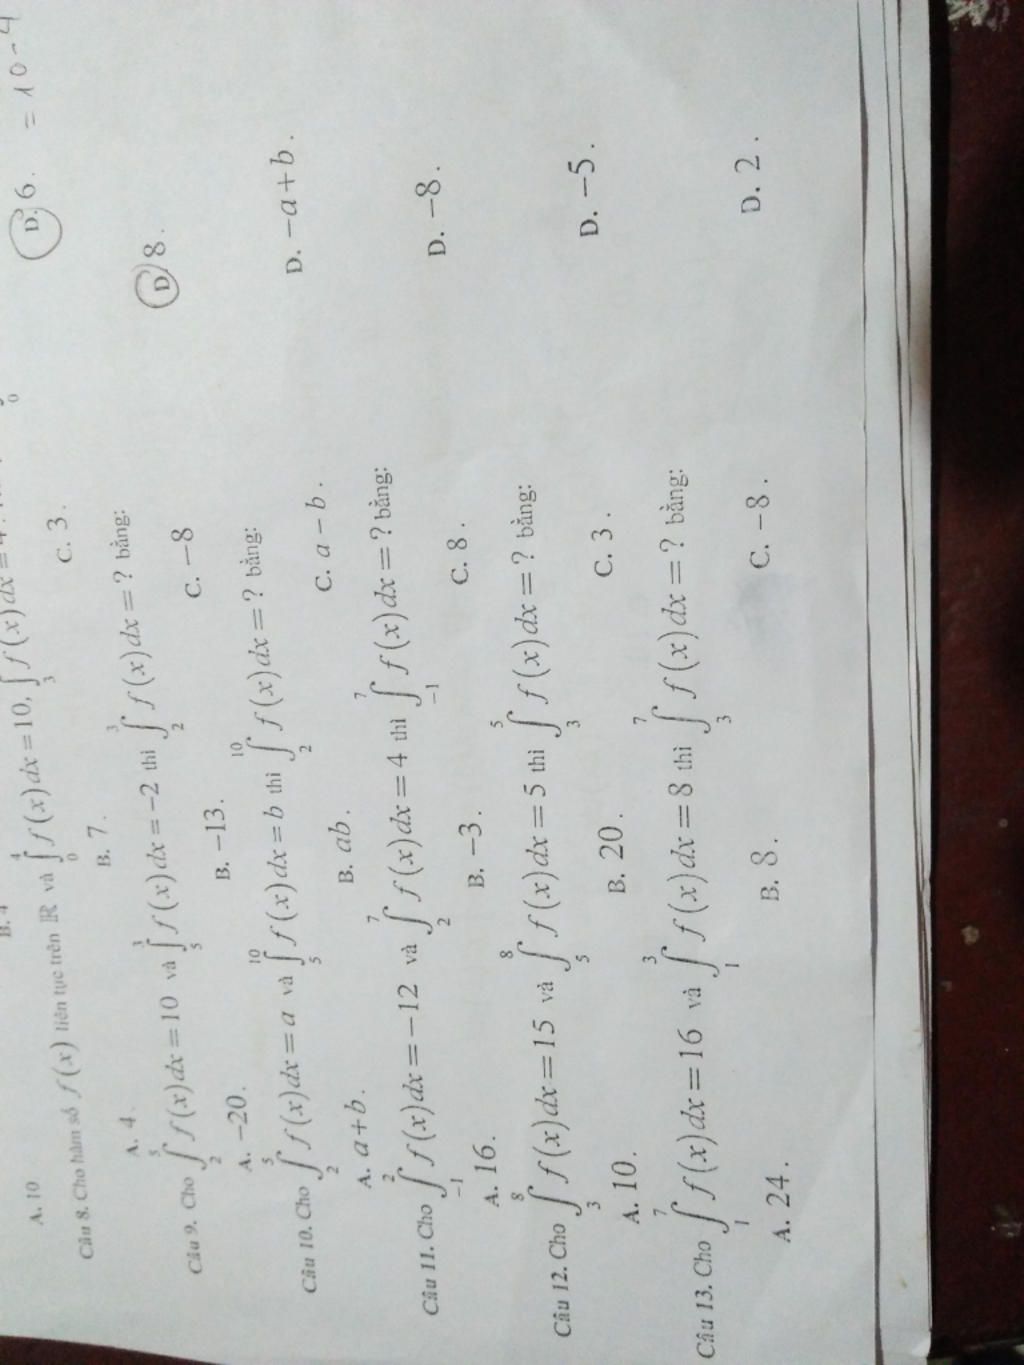 B. 4
A. 10
Câu 8. Cho hàm số f(x) liên tục trên ℝ và ∫_0^4 f(x)dx = 10, ∫_3 f(x)dx = 4
A. 4. B. 7. C. 3. D. 6. = 10 - 4
Câu 9. Cho ∫_2^5 f(x)dx = 10 và ∫_5^3 f(x)dx = -2 thì ∫_2^3 f(x)dx = ? bằng:
A. -20. B. -13. C. -8 D. 8.
Câu 10. Cho ∫_2^5 f(x)dx = a và ∫_5^10 f(x)dx = b thì ∫_2^10 f(x)dx = ? bằng:
A. a+b. B. ab. C. a-b. D. -a+b.
Câu 11. Cho ∫_{-1}^2 f(x)dx = -12 và ∫_2^7 f(x)dx = 4 thì ∫_{-1}^7 f(x)dx = ? bằng:
A. 16. B. -3. C. 8. D. -8.
Câu 12. Cho ∫_3^8 f(x)dx = 15 và ∫_5^8 f(x)dx = 5 thì ∫_3^5 f(x)dx = ? bằng:
A. 10. B. 20. C. 3. D. -5.
Câu 13. Cho ∫_1^7 f(x)dx = 16 và ∫_1^3 f(x)dx = 8 thì ∫_3^7 f(x)dx = ? bằng:
A. 24. B. 8. C. -8. D. 2.